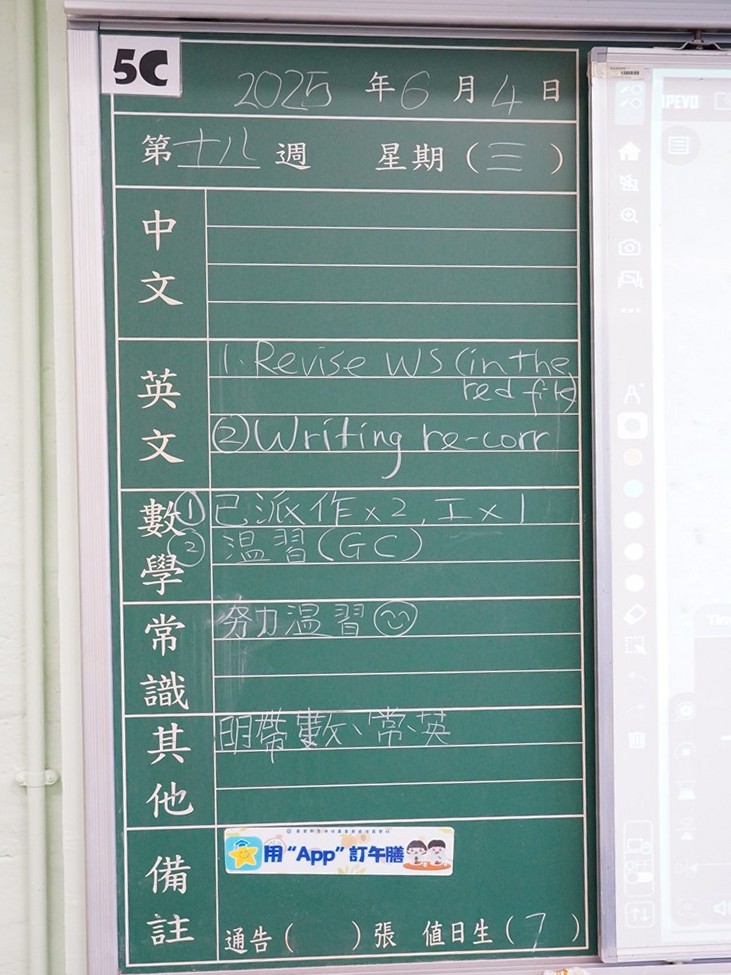 5C
2025 年 6 月 4 日
第 十八 週 星期 ( 三 )
中文
英文
1. Revise WS (in the
red file)
② Writing re-corr
數學
① 已派作 x 2, 工 x 1
② 溫習 (GC)
常識
努力溫習
其他
明帶數、常、英
備註
用 “App” 訂午膳
通告 ( ) 張 值日生 ( 7 )
IPEVO
A
OFF